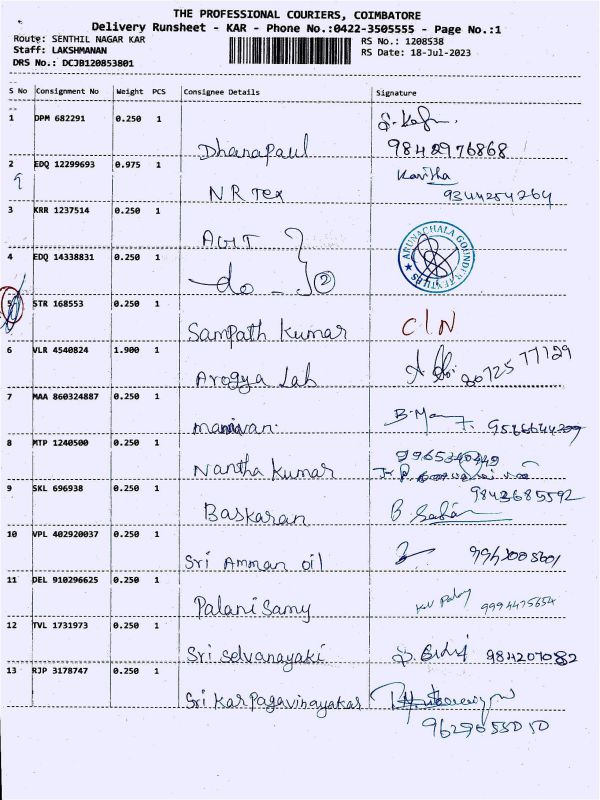 THE PROFESSIONAL COURIERS, COIMBATORE
Delivery Runsheet - KAR - Phone No.:0422-3505555 - Page No.:1
Route: SENTHIL NAGAR KAR RS No.: 1208538
Staff: LAKSHMANAN RS Date: 18-Jul-2023
DRS No.: DCJB120853801
S No Consignment No Weight PCS Consignee Details Signature
1 DPM 682291 0.250 1
Dhanapaul 9842976868
2 EDQ 12299693 0.975 1 Kavitha
9 NR Tex 9344254264
3 KRR 1237514 0.250 1
AGIT
ARUNACHALA GOUNDER TEXTILES
4 EDQ 14338831 0.250 1
do 2
5 STR 168553 0.250 1
Sampath Kumar C/N
6 VLR 4540824 1.900 1
Arogya Lab 77129
7 MAA 860324887 0.250 1
B. Ma
8 MTP 1240500 0.250 1
Nantha Kumar
9 SKL 696938 0.250 1 9843685592
Baskaran B.
10 VPL 402920037 0.250 1
Sri Amman oil
11 DEL 910296625 0.250 1
Palani Samy 9994475654
12 TVL 1731973 0.250 1
Sri Selvanayaki
13 RJP 3178747 0.250 1
Sri Karpagavinayakar